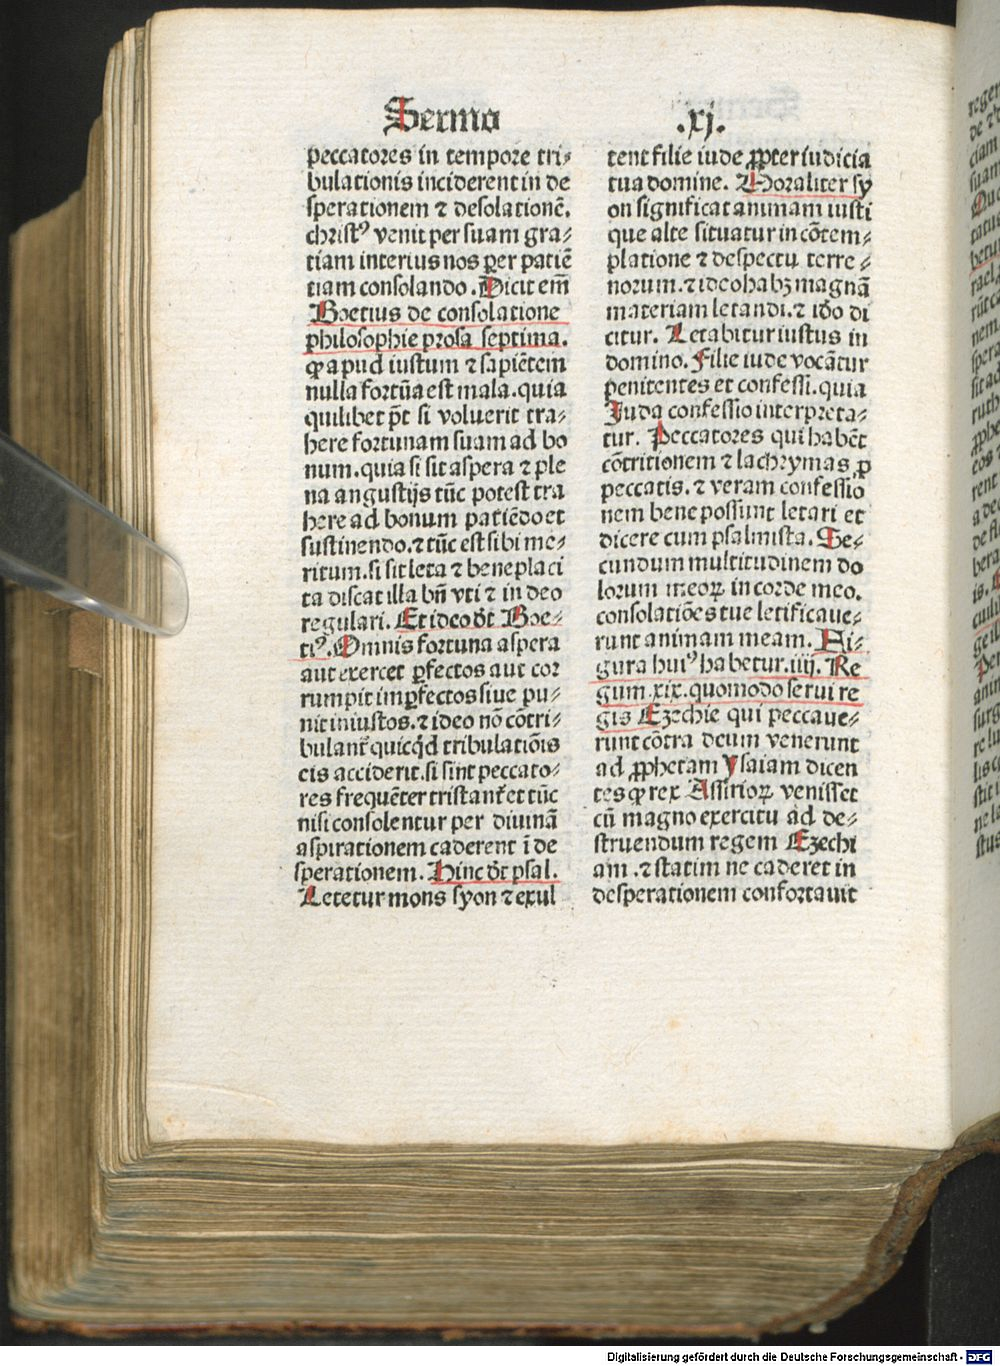 Sermo .xj.
peccatores in tempore tri⸗
bulationis inciderent in de
sperationem ⁊ desolationē.
christꝰ venit per suam gra⸗
tiam interius nos ꝑer patiē
tiam consolando. Dicit em̄
Boetius de consolatione
philosophie prosa septima.
ꝙ apud iustum ⁊ sapiētem
nulla fortūa est mala. quia
quilibet pōt si voluerit tra⸗
here fortunam suam ad bo
num. quia si sit aspera ⁊ ple
na angustijs tūc potest tra
here ad bonum patiēdo et
sustinendo. ⁊ tūc est sibi me⸗
ritum. si sit leta ⁊ beneplaci
ta discat illa bn̄ vti ⁊ in deo
regulari. Et ideo dr̄t Boe⸗
tiꝰ. Omnis fortuna aspera
aut exercet ꝑfectos aut cor
rumpit imꝑfectos siue pu⸗
nit iniustos. ⁊ ideo nō cōtri⸗
bulant᷑ quicq̄d tribulatiōis
eis acciderit. si sint peccato⸗
res frequēter tristant᷑ et tūc
nisi consolentur per diuinā
aspirationem caderent ī de
sperationem. Hinc dr̄t psal.
Letetur mons syon ⁊ exul
tent filie iude ꝓpter iudicia
tua domine. Moraliter sy
on significat animam iusti
que alte situatur in cōtem⸗
platione ⁊ despectu terre⸗
norum. ⁊ ideo habꝫ magnā
materiam letandi. ⁊ iđo di
citur. Letabitur iustus in
domino. Filie iude vocātur
penitentes et confessi. quia
Juda confessio interpreta⸗
tur. Peccatores qui habēt
cōtritionem ⁊ lachrymas ꝓ
peccatis. ⁊ veram confessio
nem bene possunt letari et
dicere cum psalmista. Se⸗
cundum multitudinem do
lorum meoꝝ in corde meo.
consolatiōes tue letificaue⸗
runt animam meam. Fi⸗
gura huiꝰ habetur .iiij. Re
gum .xix. quomodo serui re
gis Ezechie qui peccaue⸗
runt cōtra deum venerunt
ad ꝓphetam Ysaiam dicen
tes ꝙ rex Assirioꝝ venisset
cū magno exercitu ad de⸗
struendum regem Ezechi
am. ⁊ statim ne caderet in
desperationem confortauit
Digitalisierung gefördert durch die Deutsche Forschungsgemeinschaft - DFG